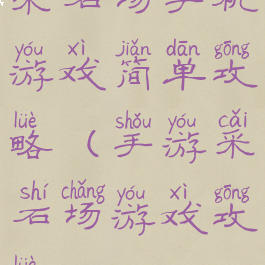 采石场手机
yóu xì jiǎn dān gōng
游戏简单攻
lüè shǒu yóu cǎi
略（手游采
shí chǎng yóu xì gōng
石场游戏攻
lüè